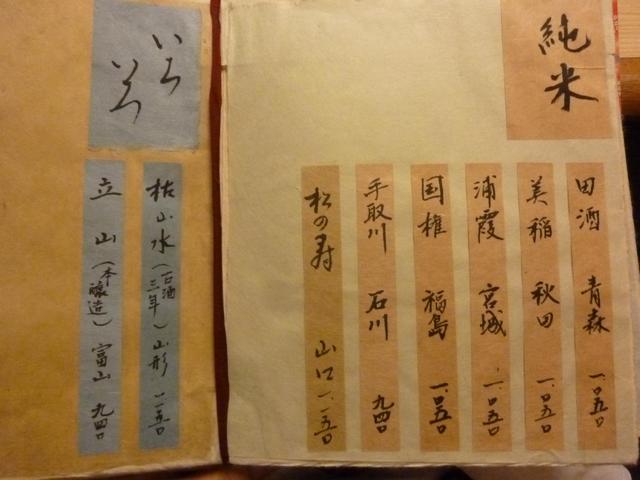 純米
田酒 青森 一、〇五〇
美稲 秋田 一、〇五〇
浦霞 宮城 一、〇五〇
国権 福島 一、〇五〇
手取川 石川 九四〇
松の寿 山口 一、一五〇
いろいろ
枯山水(古酒三年)山形 一、一五〇
立山(本醸造)富山 九四〇